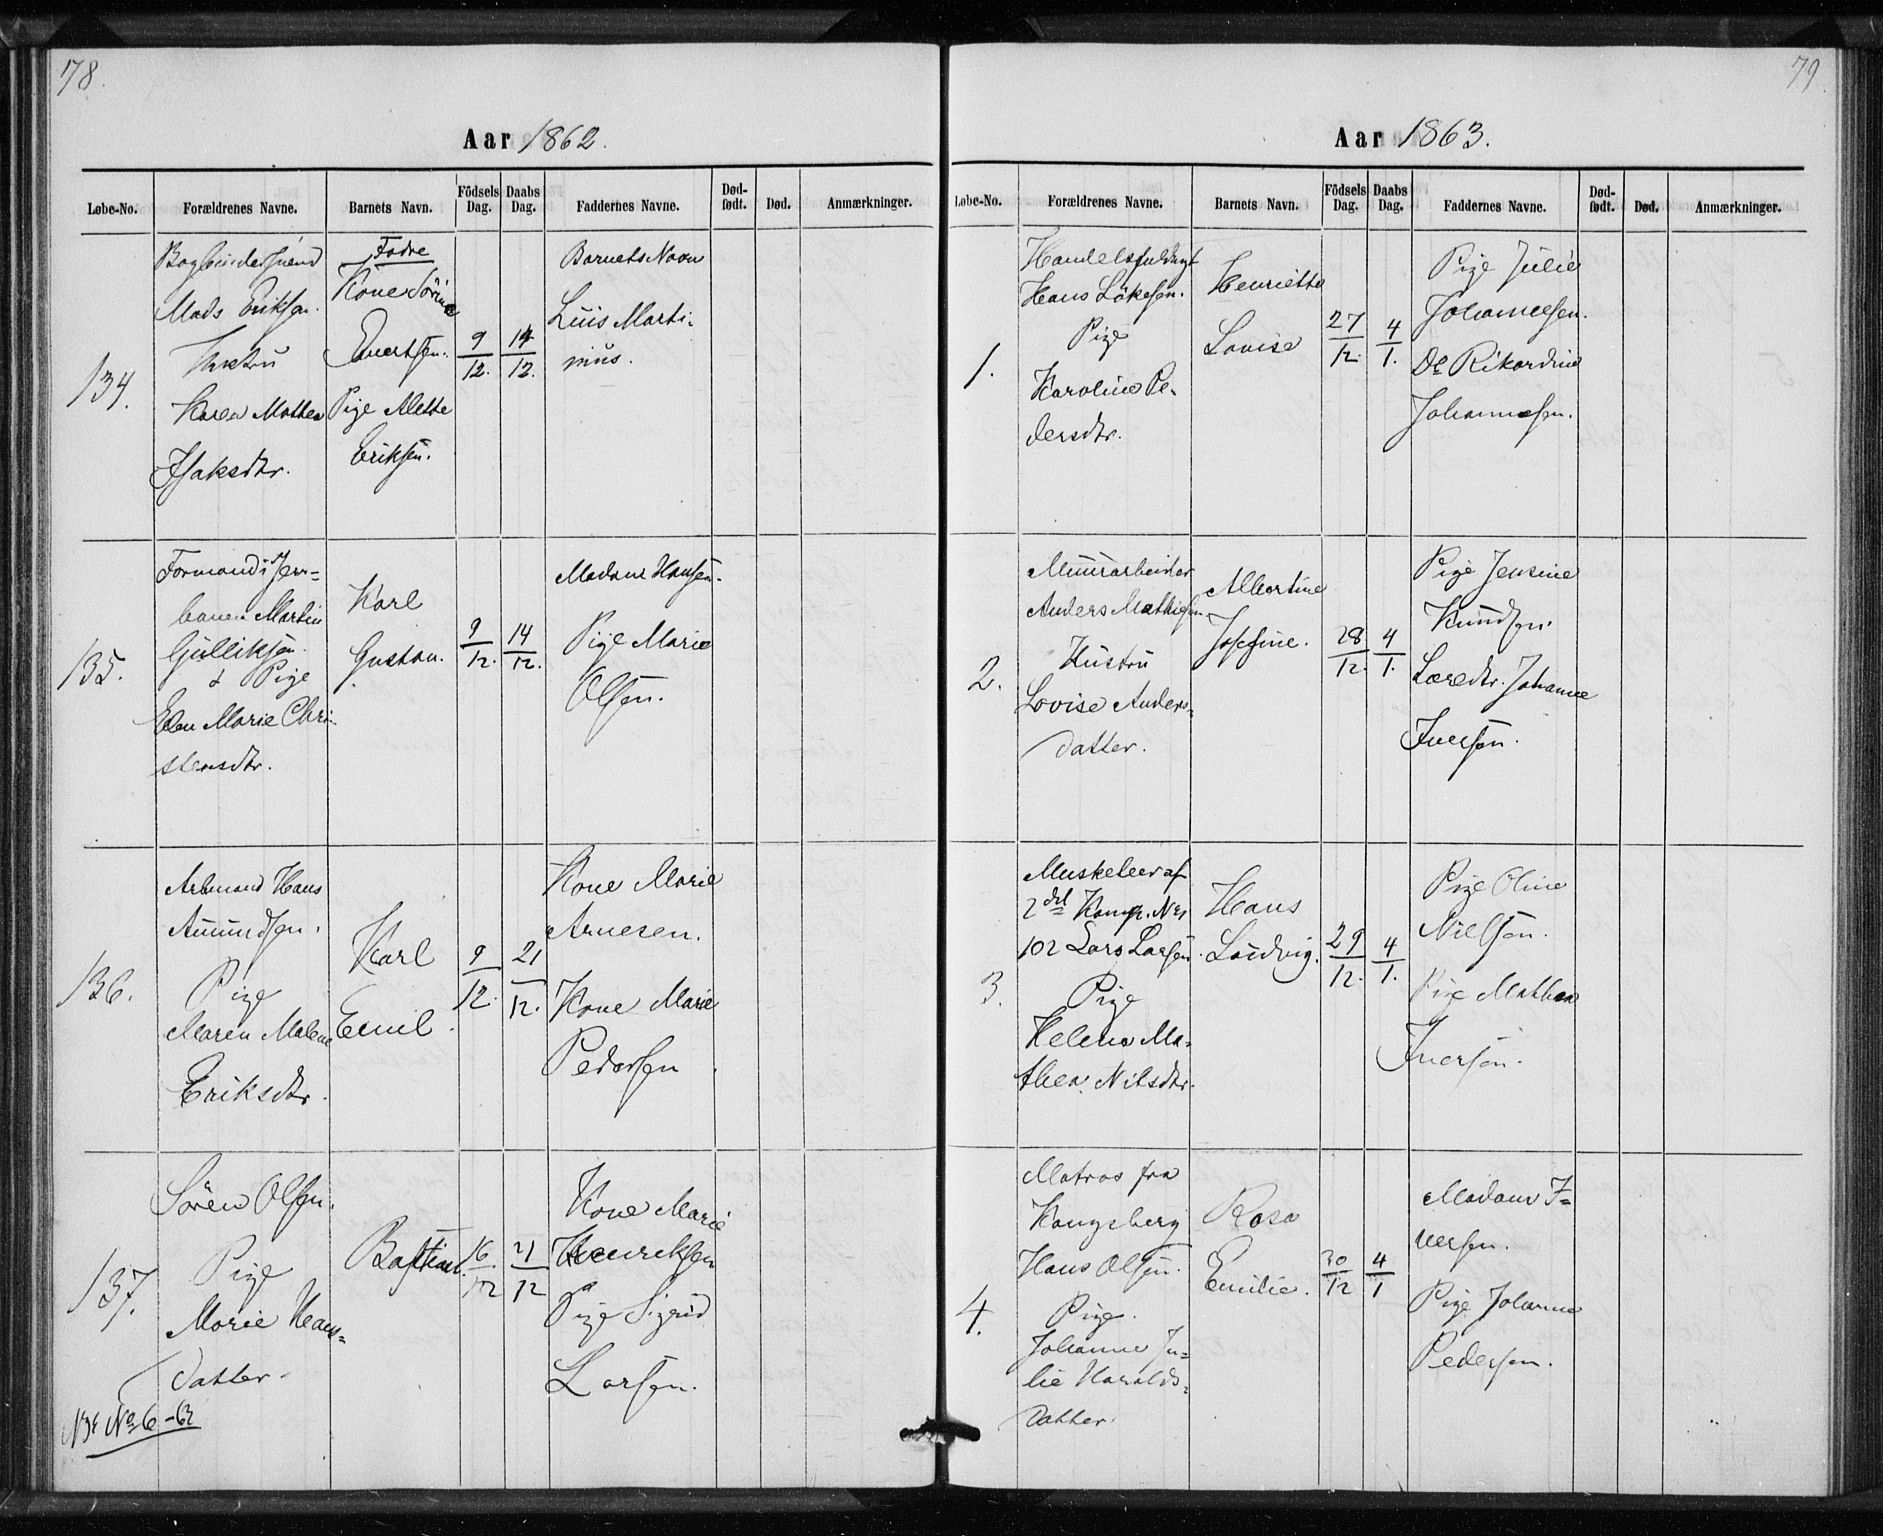 78.
Aar 1862.
Løbe-No. Forældrenes Navne. Barnets Navn. Födsels Dag. Daabs Dag. Faddernes Navne. Død-født. Død. Anmærkninger.
134.
Bogbindersvend
Mads Eriksen.
Hustru
Karen Mathea
Isaksdtr.
Fadre
Kone Sörine
Evertsen.
Pige Alette
Eriksen.
9/12.
14/12.
Barnets Navn
Luis Marti-
nius.
135.
Formand i Jern-
banen Martin
Gulliksen.
& Pige
Elen Marie Chri-
stensdtr.
Karl
Gustav.
9/12.
14/12.
Madame Hansen.
Pige Marie
Olsen.
136.
Arbmand Hans
Amundsen.
Pige
Maren Malene
Eriksdtr.
Karl
Emil.
9/12.
21/12.
Kone Marie
Arnesen.
Kone Marie
Pedersen.
137.
Sören Olsen.
Pige
Marie Hans-
datter.
Bastian.
16/12
21/12
Kone Marie
Henriksen
Pige Sigrid
Larsen.
No 6-62
79.
Aar 1863.
Løbe-No. Forældrenes Navne. Barnets Navn. Födsels Dag. Daabs Dag. Faddernes Navne. Død-født. Død. Anmærkninger.
1.
Handelsfuldmgt
Hans Lökesen.
Pige
Karoline Pe-
dersdtr.
Henriette
Lovise
27/12.
4/1.
Pige Julie
Johannesen.
Do Rikardine
Johannesen.
2.
Muurarbeider
Anders Mathisen
Hustru
Lovise Anders-
datter.
Albertine
Josefine.
28/12.
4/1.
Pige Jensine
Knudsen.
Læredtr. Johanne
Iversen.
3.
Musketeer af
2det Komp. No
102 Lars Larsen.
Pige
Helene Ma-
thea Nilsdtr.
Hans
Ludvig.
29/12.
4/1.
Pige Oline
Nielsen.
Pige Mathea
Iversen.
4.
Matros fra
Kongsberg
Hans Olsen.
Pige.
Johanne Ju-
lie Haralds-
datter.
Rosa
Emilie.
30/12
4/1
Madame I-
versen.
Pige Johanne
Pedersen.